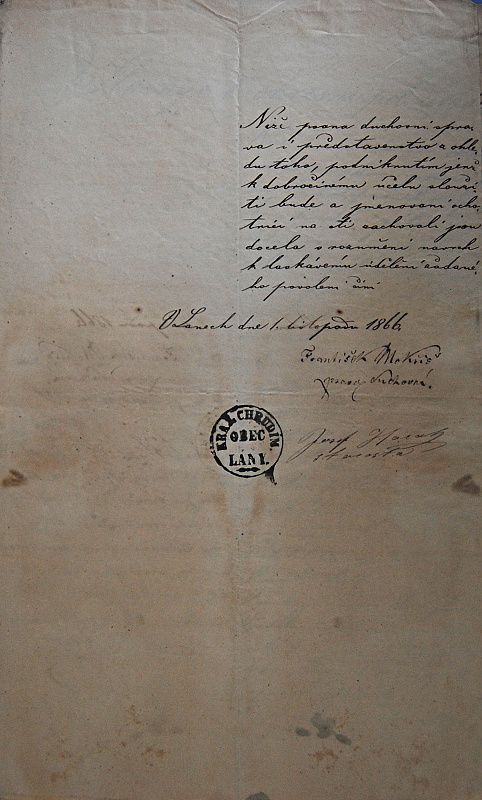 Níže psana duchovní sprá-
va i představenstvo z ohle-
du toho, podniknutím jenž
k dobročinému účelu slouži-
ti bude a jmenovaní ocho-
tníci na ti zachovalí jsou
docela s rozumění navrh
k laskávému údělení žádané-
ho povolení činí
V Lanech dne 1. listopadu 1866.
František
správ. duchovní.
KRAJ CHRUDIM.
OBEC
LÁNY.
Josef
starosta